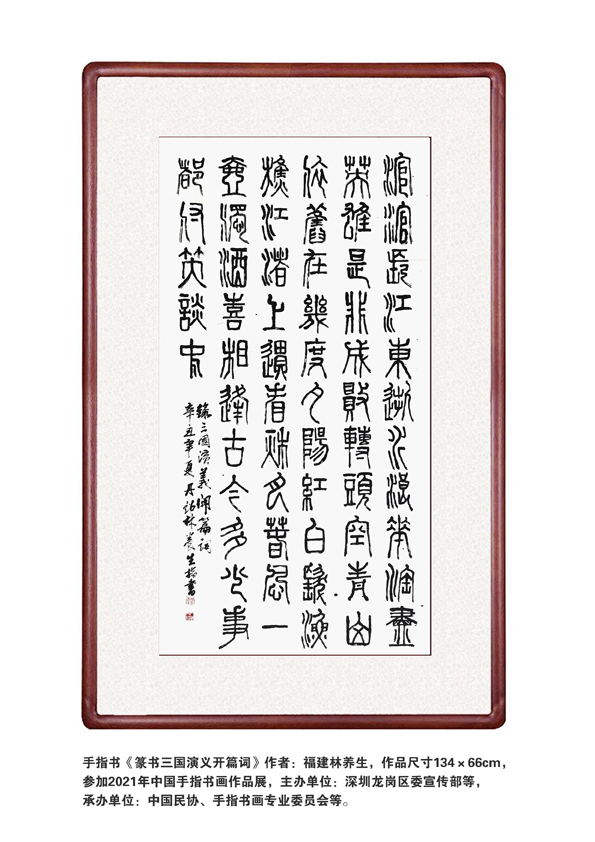 滾滾長江東逝水浪花淘盡
英雄是非成敗轉頭空青山
依舊在幾度夕陽紅白髮漁
樵江渚上看秋月春風一
壺濁酒喜相逢古今多少事
都付笑談中
錄三國演義開篇詞
辛丑年夏林養生指書
手指书《篆书三国演义开篇词》作者：福建林养生，作品尺寸134×66cm，
参加2021年中国手指书画作品展，主办单位：深圳龙岗区委宣传部等，
承办单位：中国民协、手指书画专业委员会等。